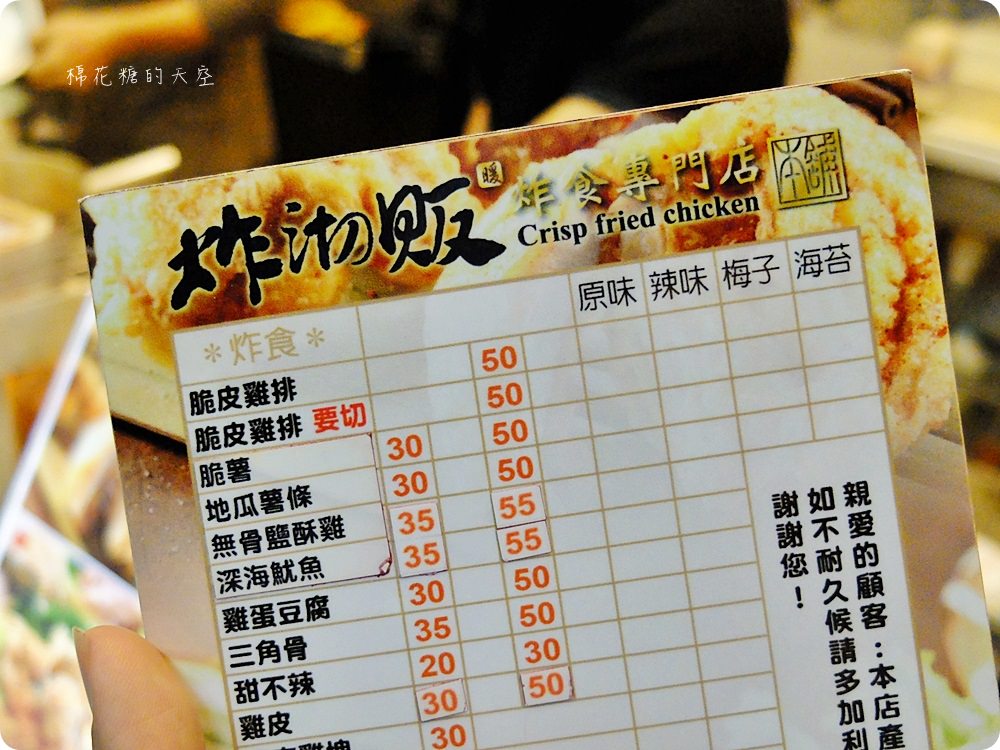 棉花糖的天空
炸沏販
暖
炸食專門店
本鋪
Crisp fried chicken
原味 辣味 梅子 海苔
*炸食*
脆皮雞排 50
脆皮雞排 要切 50
脆薯 30 50
地瓜薯條 30 50
無骨鹽酥雞 35 55
深海魷魚 35 55
雞蛋豆腐 30 50
三角骨 35 50
甜不辣 20 30
雞皮 30 50
30
親愛的顧客:本店產
如不耐久候請多加利
謝謝您!